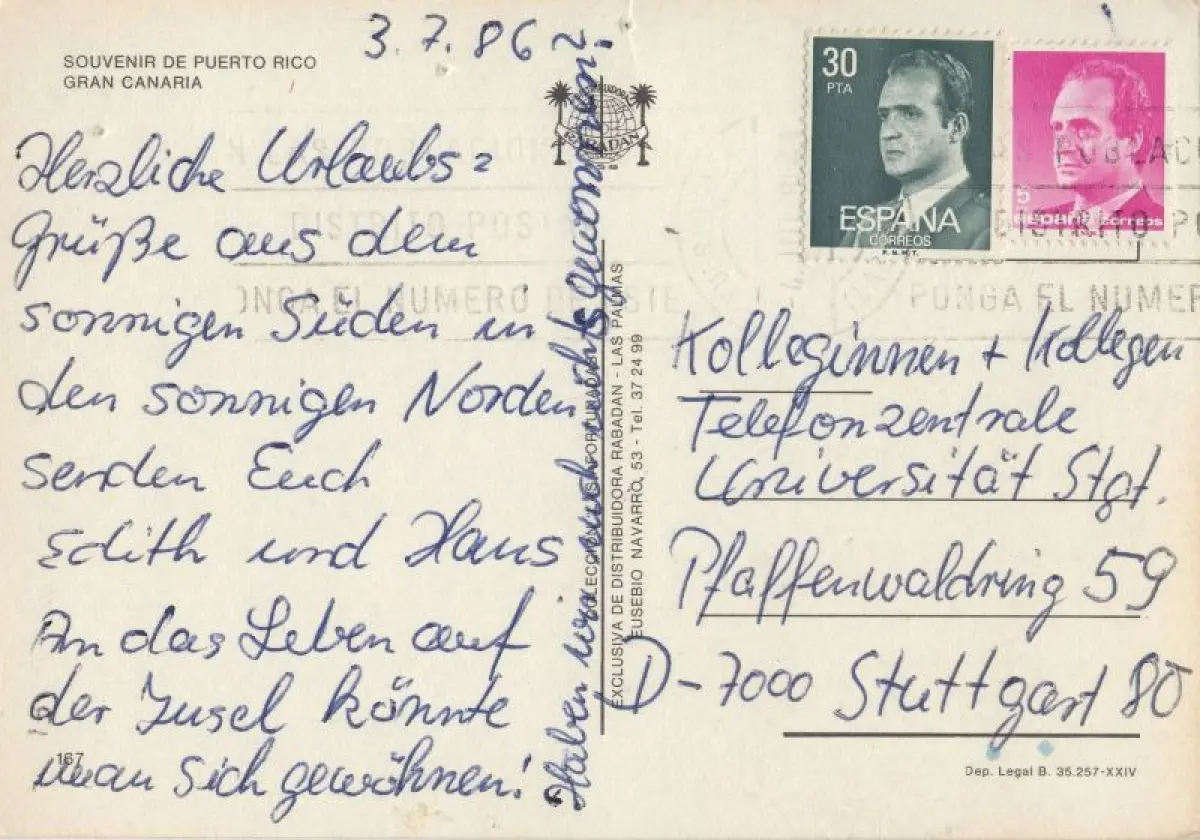 3.7.86
SOUVENIR DE PUERTO RICO
GRAN CANARIA
Herzliche Urlaubs=
Grüße aus dem
sonnigen Süden in
den sonnigen Norden
senden Euch
Edith und Hans
An das Leben auf
der Insel könnte
man sich gewöhnen!
167
Haben wir im nichts gewonnen?
RABADAN
EXCLUSIVA DE DISTRIBUIDORA RABADAN - LAS PALMAS
EUSEBIO NAVARRO, 53 - Tel. 37 24 99
30
PTA
ESPAÑA
CORREOS
F.N.M.T.
5
españa correos
DISTRITO POST
ONGA EL NUMERO DE ESTE
PONGA EL NUMER
Kolleginnen + Kollegen
Telefonzentrale
Universität Stgt.
Pfaffenwaldring 59
D-7000 Stuttgart 80
Dep. Legal B. 35.257-XXIV